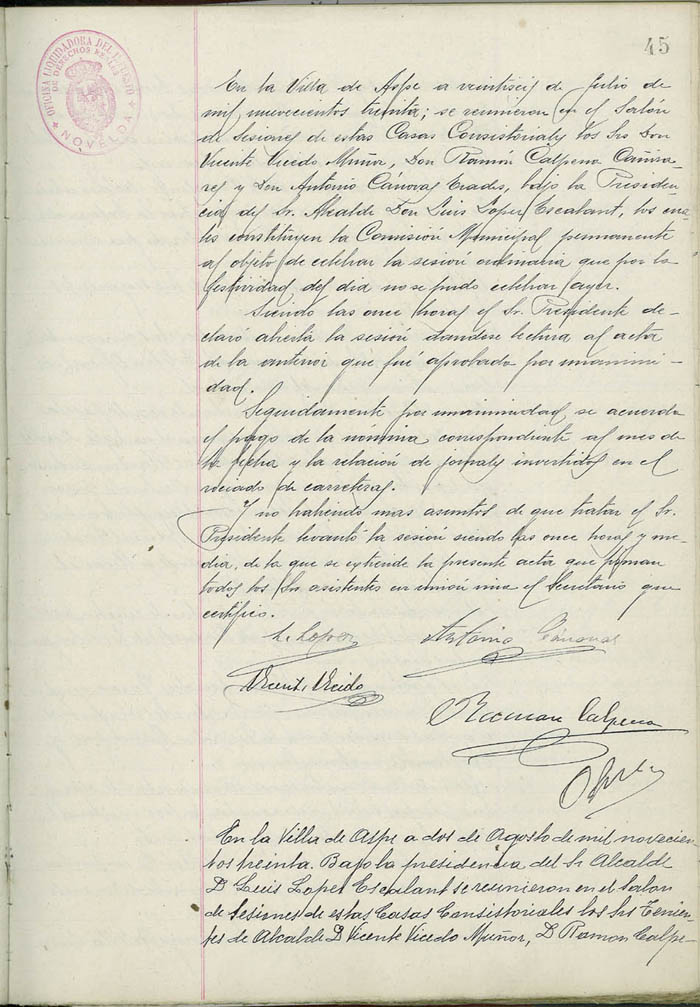 45
OFICINA LIQUIDADORA DEL IMPUESTO
DE DERECHOS REALES
NOVELDA
En la Villa de Aspe a veintiseis de Julio de
mil novecientos treinta; se reunieron en el Salón
de Sesiones de estas Casas Consistoriales los Srs Don
Vicente Vicedo Muñoz, Don Ramón Calpena Cañiza-
res y Don Antonio Cánovas Erades, bajo la Presiden-
cia del Sr. Alcalde Don Luis Lopez Escalant, los cua-
les constituyen la Comisión Municipal permanente
al objeto de celebrar la sesión ordinaria que por la
festividad del dia no se pudo celebrar ayer.
Siendo las once horas el Sr. Presidente de-
claró abierta la sesión dandose lectura al acta
de la anterior que fué aprobada por unanimi-
dad.
Seguidamente por unanimidad se acuerda
el pago de la nómina correspondiente al mes de
la fecha y la relación de jornales invertidos en el
rociado de carreteras.
Y no habiendo mas asuntos de que tratar el Sr.
Presidente levantó la sesión siendo las once horas y me-
dia, de la que se extiende la presente acta que firman
todos los Srs asistentes en unión mia el Secretario que
certifico.
L. Lopez Antonio Cánovas
Vicente Vicedo
Ramon Calpena
En la Villa de Aspe a dos de Agosto de mil novecien
tos treinta. Bajo la presidencia del Sr Alcalde
D Luis Lopez Escalant se reunieron en el Salon
de Sesiones de estas Casas Consistoriales los Srs Tenien-
tes de Alcalde D Vicente Vicedo Muñoz, D Ramon Calpe-